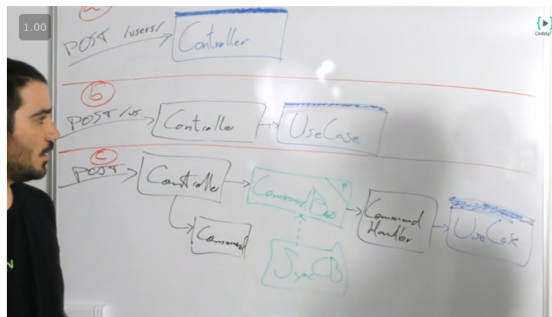 1.00
POST /users/
Controller
CodelyTV
b
POST /us
Controller
UseCase
c
POST
Controller
CommandBus
P
Command
Handler
UseCase
Command
SyncCB